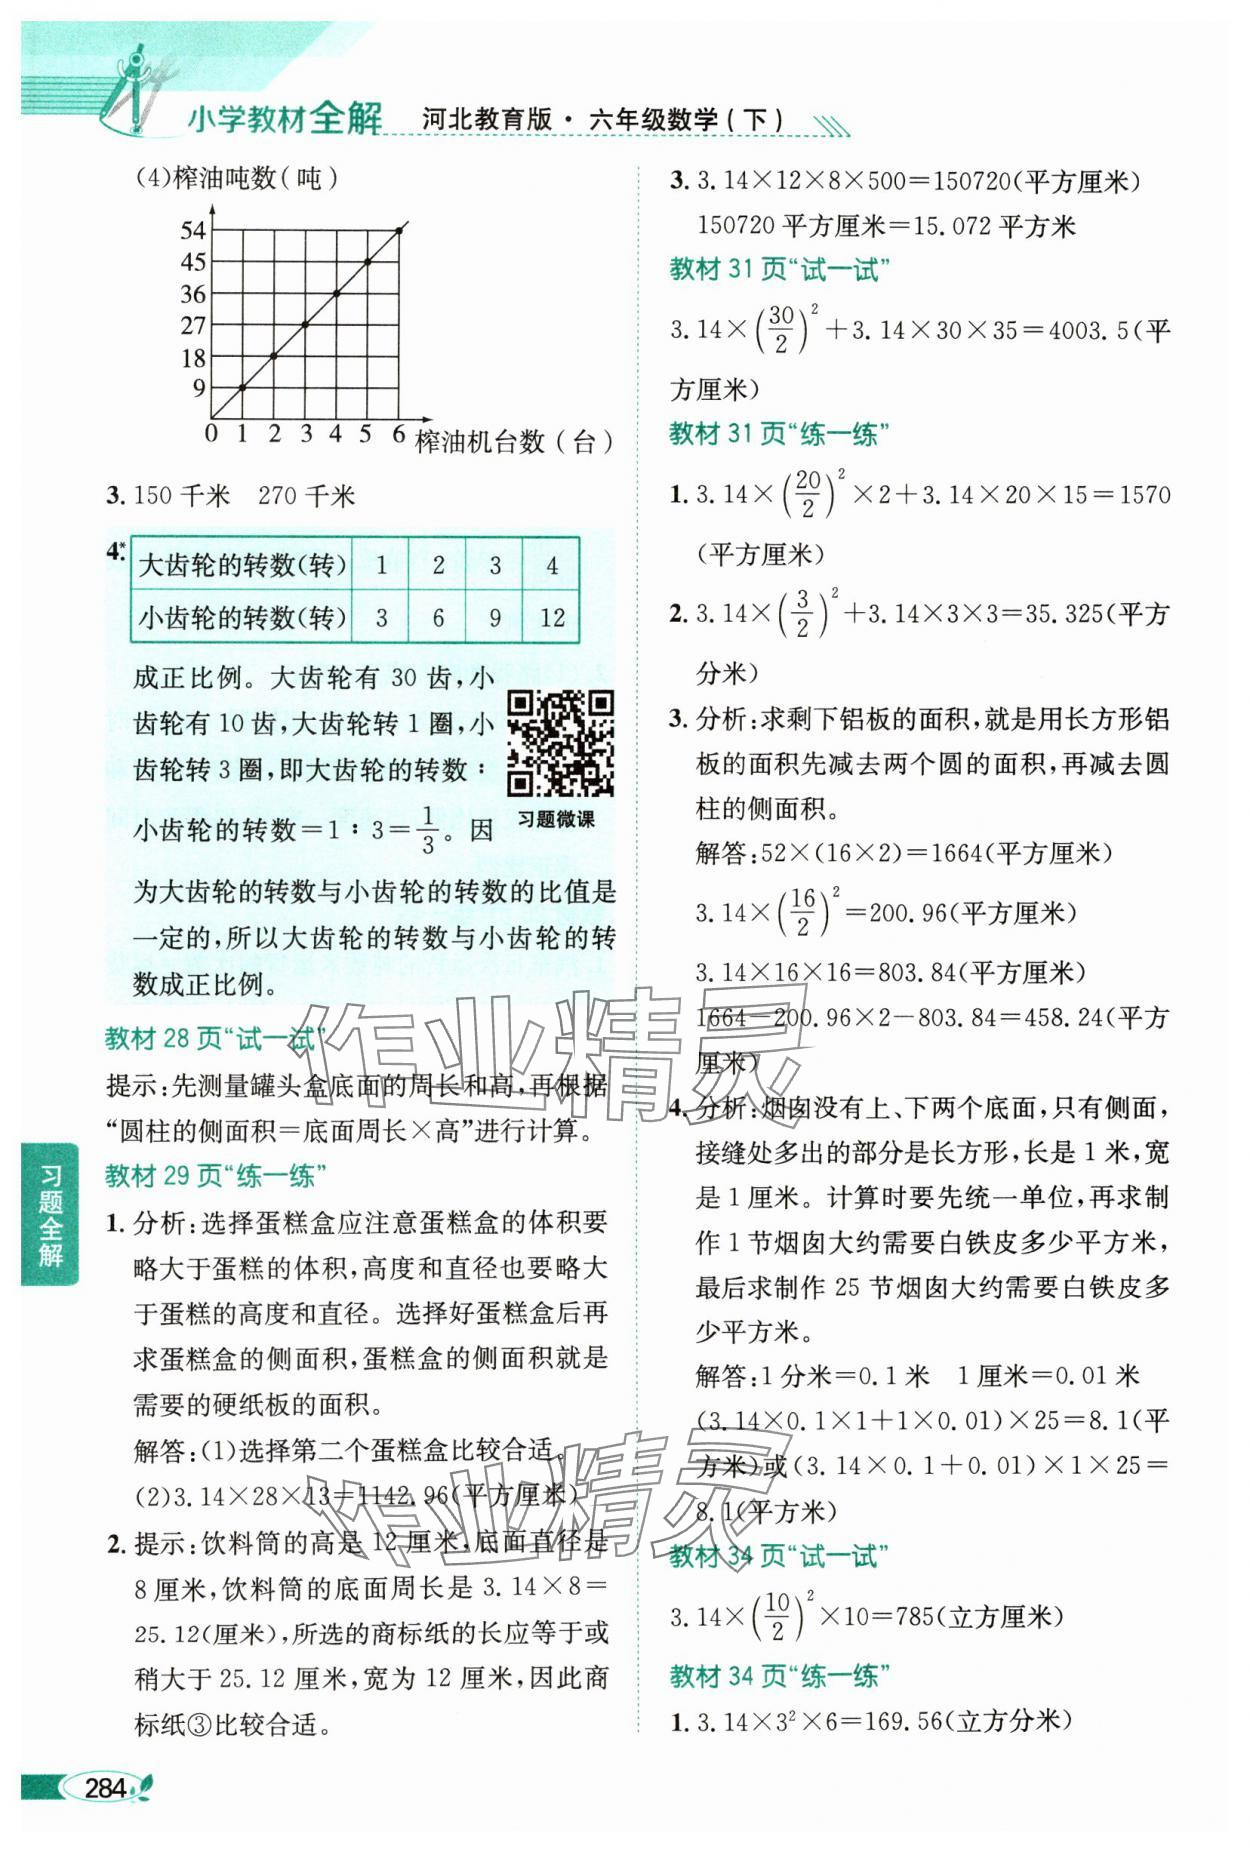 小学教材全解 河北教育版·六年级数学(下)
(4)榨油吨数(吨)
54
45
36
27
18
9
0 1 2 3 4 5 6 榨油机台数(台)
3. 150 千米 270 千米
4*. 大齿轮的转数(转) 1 2 3 4
小齿轮的转数(转) 3 6 9 12
成正比例。大齿轮有 30 齿,小
齿轮有 10 齿,大齿轮转 1 圈,小
齿轮转 3 圈,即大齿轮的转数∶
小齿轮的转数=1∶3=1/3。因
习题微课
为大齿轮的转数与小齿轮的转数的比值是
一定的,所以大齿轮的转数与小齿轮的转
数成正比例。
教材 28 页“试一试”
提示:先测量罐头盒底面的周长和高,再根据
“圆柱的侧面积=底面周长×高”进行计算。
教材 29 页“练一练”
1. 分析:选择蛋糕盒应注意蛋糕盒的体积要
略大于蛋糕的体积,高度和直径也要略大
于蛋糕的高度和直径。选择好蛋糕盒后再
求蛋糕盒的侧面积,蛋糕盒的侧面积就是
需要的硬纸板的面积。
解答:(1)选择第二个蛋糕盒比较合适。
(2)3.14×28×13=1142.96(平方厘米)
2. 提示:饮料筒的高是 12 厘米,底面直径是
8 厘米,饮料筒的底面周长是 3.14×8=
25.12(厘米),所选的商标纸的长应等于或
稍大于 25.12 厘米,宽为 12 厘米,因此商
标纸③比较合适。
3. 3.14×12×8×500=150720(平方厘米)
150720 平方厘米=15.072 平方米
教材 31 页“试一试”
3.14×(30/2)²+3.14×30×35=4003.5(平
方厘米)
教材 31 页“练一练”
1. 3.14×(20/2)²×2+3.14×20×15=1570
(平方厘米)
2. 3.14×(3/2)²+3.14×3×3=35.325(平方
分米)
3. 分析:求剩下铝板的面积,就是用长方形铝
板的面积先减去两个圆的面积,再减去圆
柱的侧面积。
解答:52×(16×2)=1664(平方厘米)
3.14×(16/2)²=200.96(平方厘米)
3.14×16×16=803.84(平方厘米)
1664-200.96×2-803.84=458.24(平方
厘米)
4. 分析:烟囱没有上、下两个底面,只有侧面,
接缝处多出的部分是长方形,长是 1 米,宽
是 1 厘米。计算时要先统一单位,再求制
作 1 节烟囱大约需要白铁皮多少平方米,
最后求制作 25 节烟囱大约需要白铁皮多
少平方米。
解答:1 分米=0.1 米 1 厘米=0.01 米
(3.14×0.1×1+1×0.01)×25=8.1(平
方米)或(3.14×0.1+0.01)×1×25=
8.1(平方米)
教材 34 页“试一试”
3.14×(10/2)²×10=785(立方厘米)
教材 34 页“练一练”
1. 3.14×3²×6=169.56(立方分米)
习题全解
284
作业精灵
作业精灵